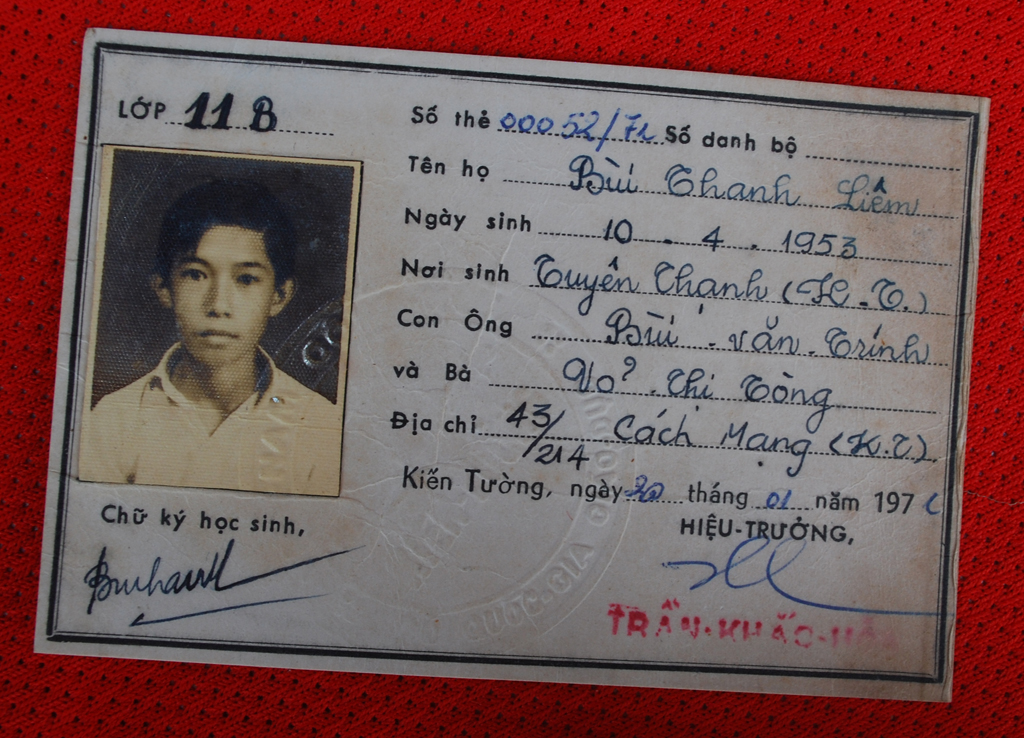 LỚP 11 B
Số thẻ 00052/71 Số danh bộ
Tên họ Bùi Thanh Liêm
Ngày sinh 10 - 4 - 1953
Nơi sinh Tuyên Thạnh (K-T.)
Con Ông Bùi - Văn - Trính
và Bà Võ - Thị Tòng
Địa chỉ 43/214 Cách Mạng (K.T)
Kiến Tường, ngày 20 tháng 01 năm 197
Chữ ký học sinh,
HIỆU-TRƯỞNG,
TRẦN-KHẮC-
QUỐC-GIA